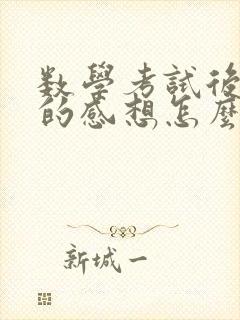 数學考試後
的感想怎麼
新城一